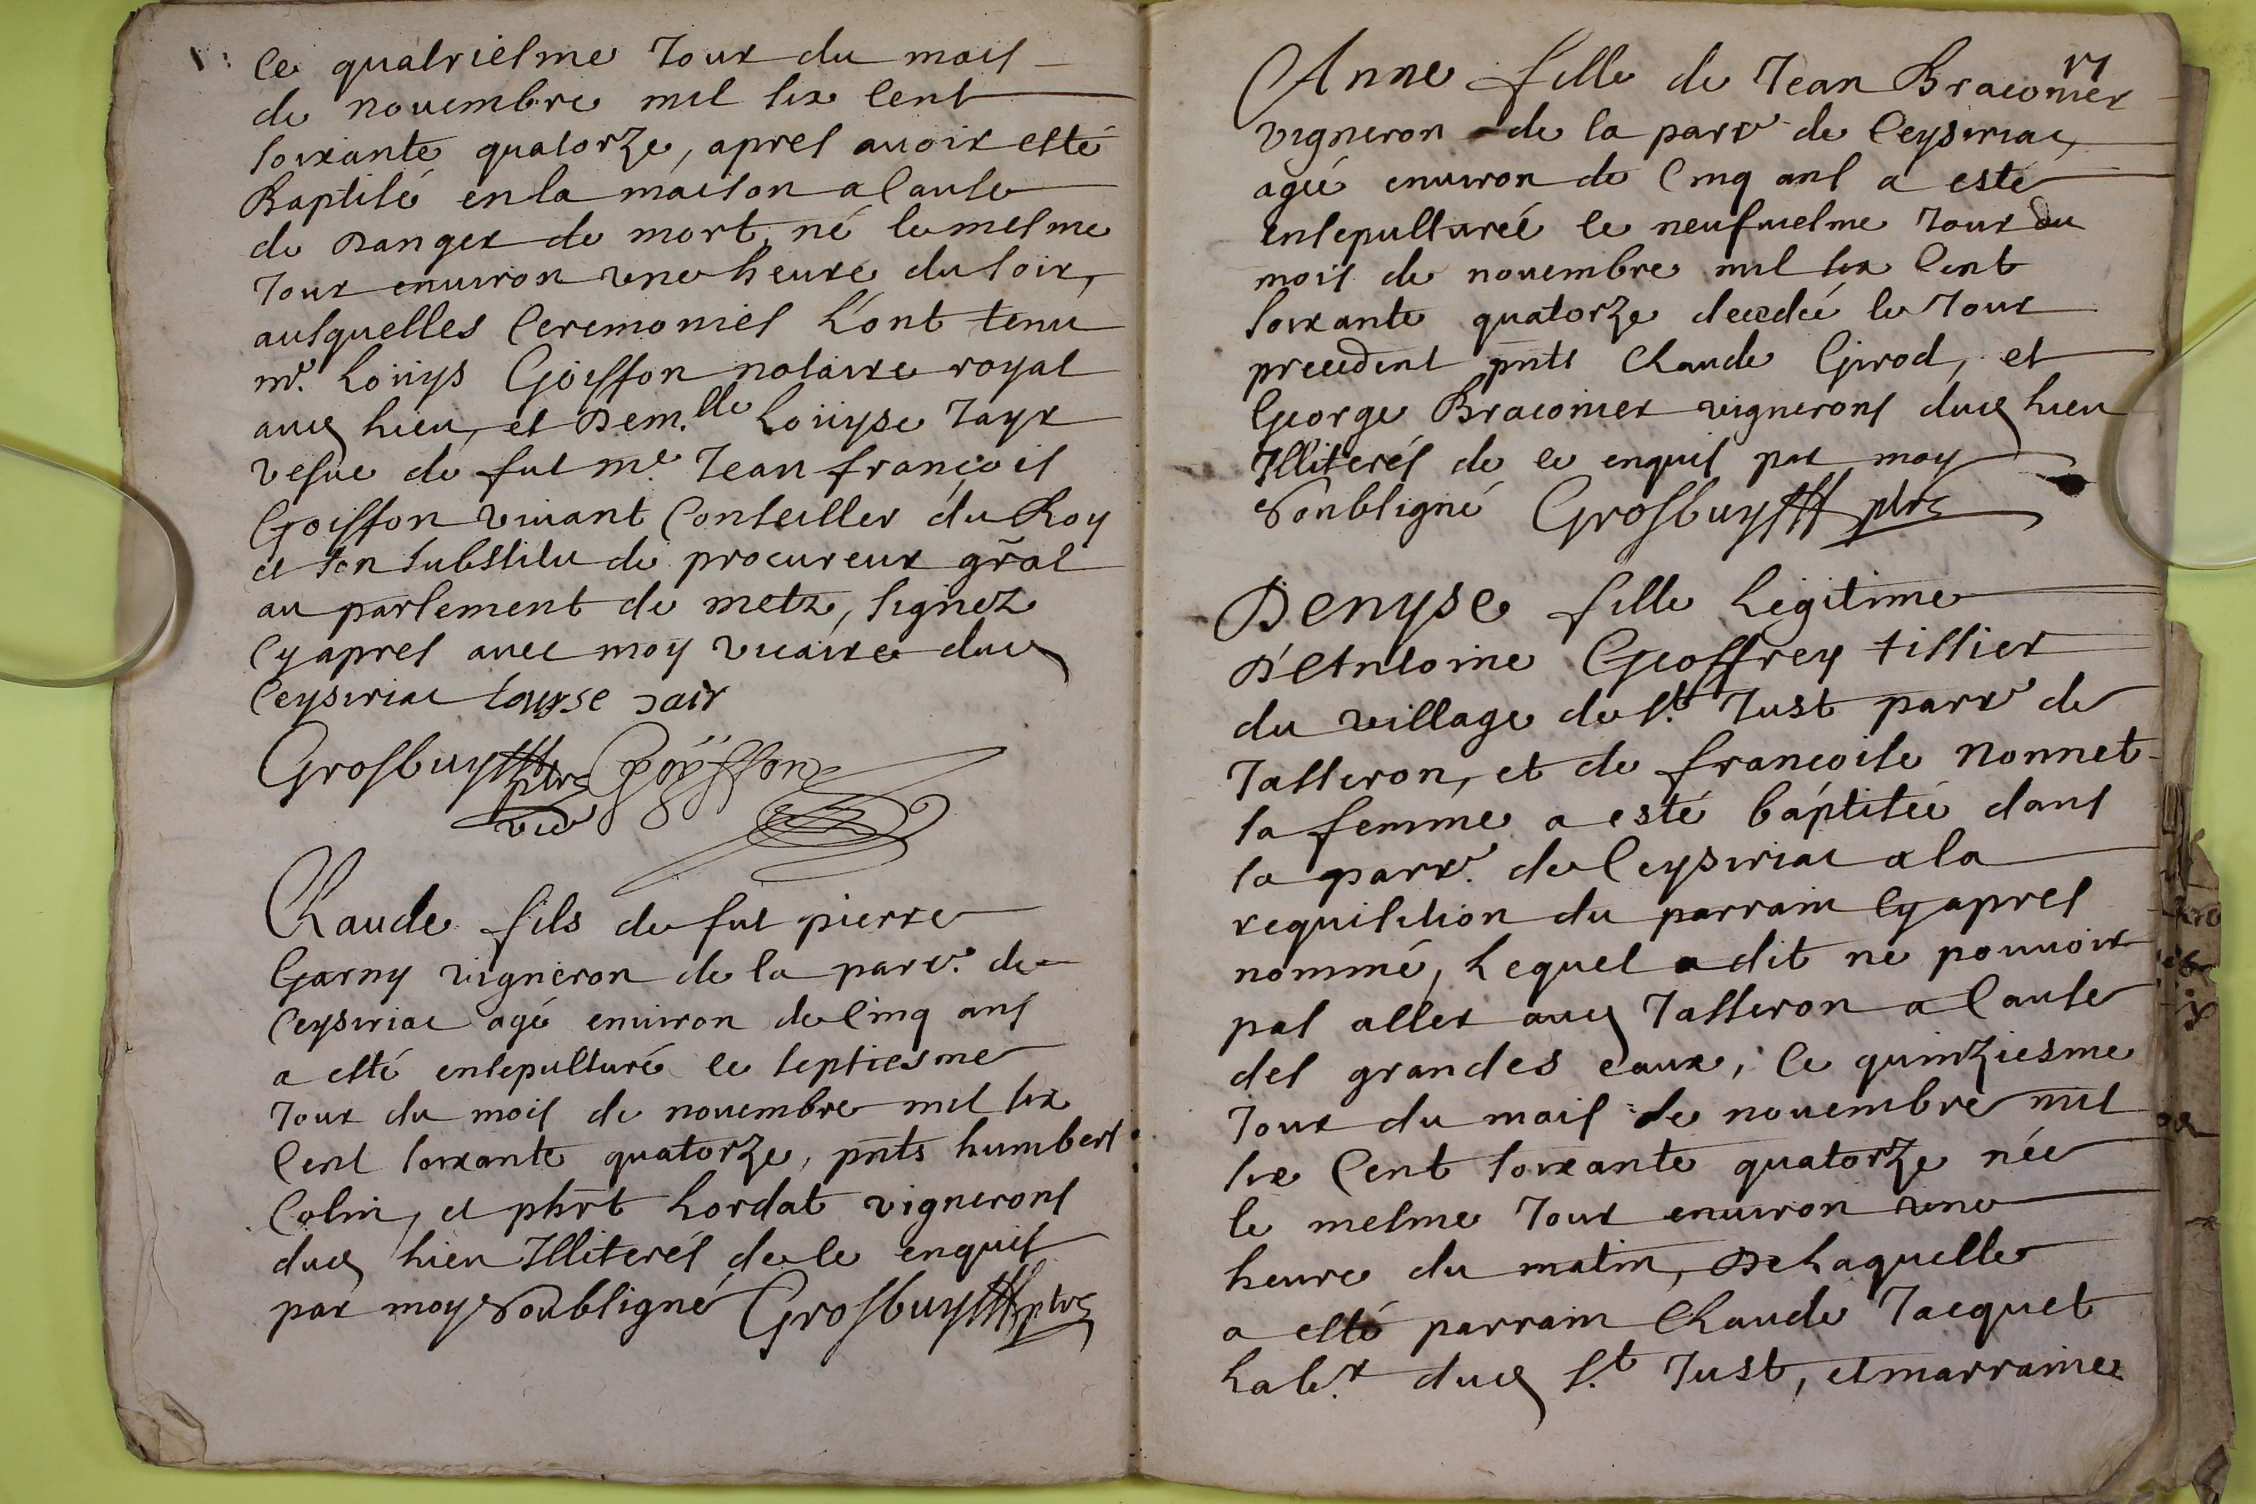 Le quatriesme Jour du mois
de nouembre mil six Cent
soixante quatorze, apres auoir esté
Baptisé en la maison a Cause
de Danger de mort, né le mesme
Jour enuiron vne heure du soir,
ausquelles Ceremonies L'ont tenu
mr. Loüys Goiffon notaire royal
aud lieu, et Dem.lle Loüyse Jayr
vefue de fut me. Jean françois
Goiffon viuant Conseiller du Roy
et son substitu de procureur gñal
au parlement de metz, signez
Cy apres auec moy vicaire dud
Ceysiriac louyse Jair
Grosbuy ptre Goyffon
vic
Claude fils de fut pierre
Garny vigneron de la parr. de
Ceysiriac agé enuiron de Cinq ans
a esté ensepulturé le septiesme
Jour du mois de nouembre mil six
Cent soixante quatorze, pnts humbert
Colin, et phrt Lordat vignerons
dud lieu Illiterés de ce enquis
par moy soubsigné Grosbuy ptre
17
Anne fille de Jean Braconier
vigneron de la parr de Ceysiriac,
agée enuiron de Cinq ans a esté
ensepulturée le neufuiesme Jour du
mois de nouembre mil six Cent
soixante quatorze decedée le Jour
precedent pnts Claude Girod, et
George Braconier vignerons dud lieu
Illiterés de ce enquis par moy
soubsigné Grosbuy ptre
Denyse fille Legitime
D'Antoine Geoffrey tissier
du village de st. Just parr de
Jasseron, et de françoise Nonnet
sa femme a esté baptisée dans
la parr. de Ceysiriac a la
requisition du parrain Cy apres
nommé, Lequel a dit ne pouuoir
pas aller aud Jasseron a Cause
des grandes eaux, Le quinziesme
Jour du mois de nouembre mil
six Cent soixante quatorze née
le mesme Jour enuiron vne
heure du matin, De Laquelle
a esté parrain Claude Jacquet
habt. dud st. Just, et marraine